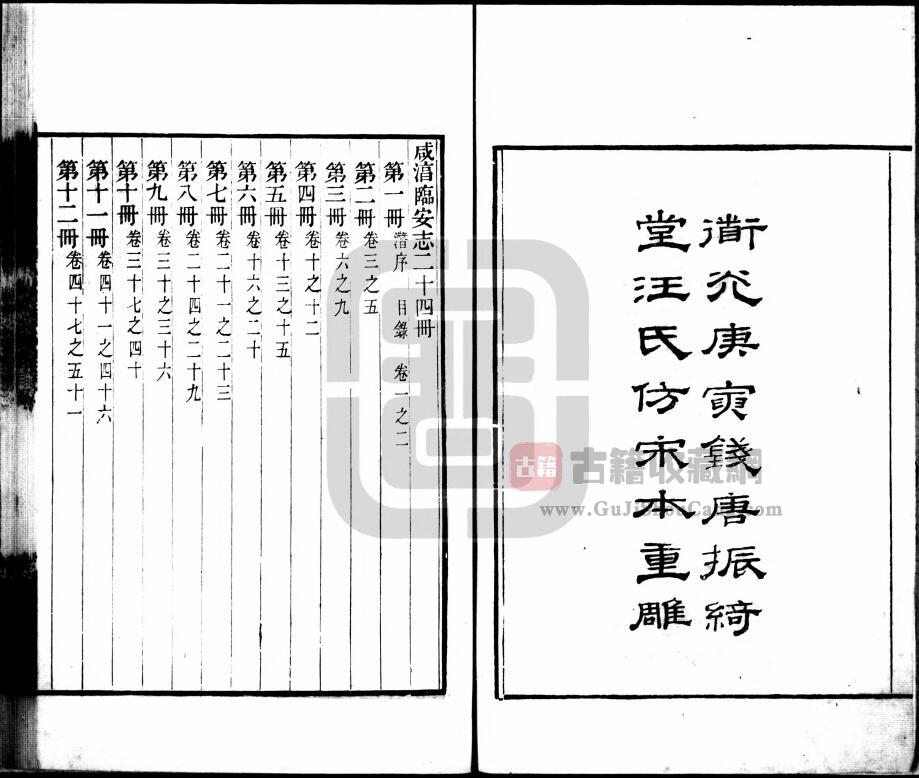 衜灮庚寅錢唐振綺
堂汪氏仿宋本重雕
咸湻臨安志二十四冊
第一冊 潛序 目錄 卷一之二
第二冊 卷三之五
第三冊 卷六之九
第四冊 卷十之十二
第五冊 卷十三之十五
第六冊 卷十六之二十
第七冊 卷二十一之二十三
第八冊 卷二十四之二十九
第九冊 卷三十之三十六
第十冊 卷三十七之四十
第十一冊 卷四十一之四十六
第十二冊 卷四十七之五十一
古籍 古籍收藏網
www.GuJiShouCang.com